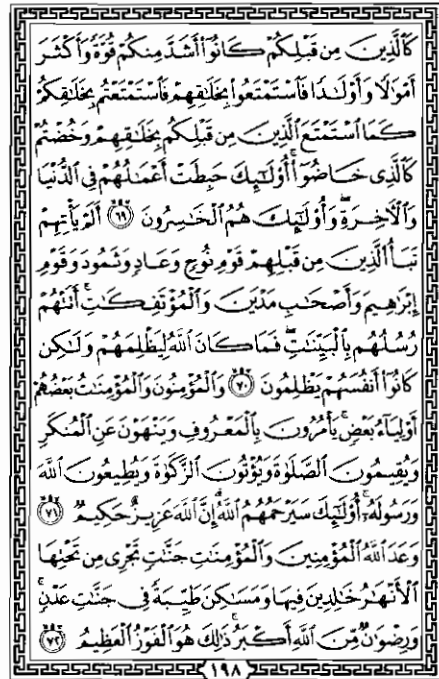 كَٱلَّذِينَ مِن قَبْلِكُمْ كَانُوٓا۟ أَشَدَّ مِنكُمْ قُوَّةً وَأَكْثَرَ
أَمْوَٰلًا وَأَوْلَٰدًا فَٱسْتَمْتَعُوا۟ بِخَلَٰقِهِمْ فَٱسْتَمْتَعْتُم بِخَلَٰقِكُمْ
كَمَا ٱسْتَمْتَعَ ٱلَّذِينَ مِن قَبْلِكُم بِخَلَٰقِهِمْ وَخُضْتُمْ
كَٱلَّذِى خَاضُوٓا۟ ۚ أُو۟لَٰٓئِكَ حَبِطَتْ أَعْمَٰلُهُمْ فِى ٱلدُّنْيَا
وَٱلْءَاخِرَةِ ۖ وَأُو۟لَٰٓئِكَ هُمُ ٱلْخَٰسِرُونَ ٦٩ أَلَمْ يَأْتِهِمْ
نَبَأُ ٱلَّذِينَ مِن قَبْلِهِمْ قَوْمِ نُوحٍ وَعَادٍ وَثَمُودَ وَقَوْمِ
إِبْرَٰهِيمَ وَأَصْحَٰبِ مَدْيَنَ وَٱلْمُؤْتَفِكَٰتِ ۚ أَتَتْهُمْ
رُسُلُهُم بِٱلْبَيِّنَٰتِ ۖ فَمَا كَانَ ٱللَّهُ لِيَظْلِمَهُمْ وَلَٰكِن
كَانُوٓا۟ أَنفُسَهُمْ يَظْلِمُونَ ٧٠ وَٱلْمُؤْمِنُونَ وَٱلْمُؤْمِنَٰتُ بَعْضُهُمْ
أَوْلِيَآءُ بَعْضٍ ۚ يَأْمُرُونَ بِٱلْمَعْرُوفِ وَيَنْهَوْنَ عَنِ ٱلْمُنكَرِ
وَيُقِيمُونَ ٱلصَّلَوٰةَ وَيُؤْتُونَ ٱلزَّكَوٰةَ وَيُطِيعُونَ ٱللَّهَ
وَرَسُولَهُۥٓ ۚ أُو۟لَٰٓئِكَ سَيَرْحَمُهُمُ ٱللَّهُ ۗ إِنَّ ٱللَّهَ عَزِيزٌ حَكِيمٌ ٧١
وَعَدَ ٱللَّهُ ٱلْمُؤْمِنِينَ وَٱلْمُؤْمِنَٰتِ جَنَّٰتٍ تَجْرِى مِن تَحْتِهَا
ٱلْأَنْهَٰرُ خَٰلِدِينَ فِيهَا وَمَسَٰكِنَ طَيِّبَةً فِى جَنَّٰتِ عَدْنٍ ۚ
وَرِضْوَٰنٌ مِّنَ ٱللَّهِ أَكْبَرُ ۚ ذَٰلِكَ هُوَ ٱلْفَوْزُ ٱلْعَظِيمُ ٧٢
١٩٨